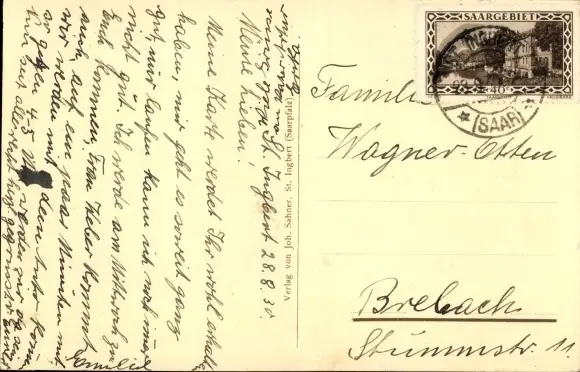 St. Ingbert 28.8.30.
Meine Lieben!
Meine Karte werdet Ihr wohl erhalten
haben, mir geht es soweit ganz
gut, nur laufen kann ich noch immer
nicht gut. Ich werde am Mittwoch zu
Euch kommen, Frau Theler kommt
auch auf ein paar Minuten mit
wir werden mit dem Auto
gegen 4-5
seid alle recht herzl gegrüsst
Emilie
Verlag von Joh. Sahner, St. Ingbert (Saarpfalz)
SAARGEBIET
40
(SAAR)
Familie
Wagner-Otten
Brebach
Stummstr. 11